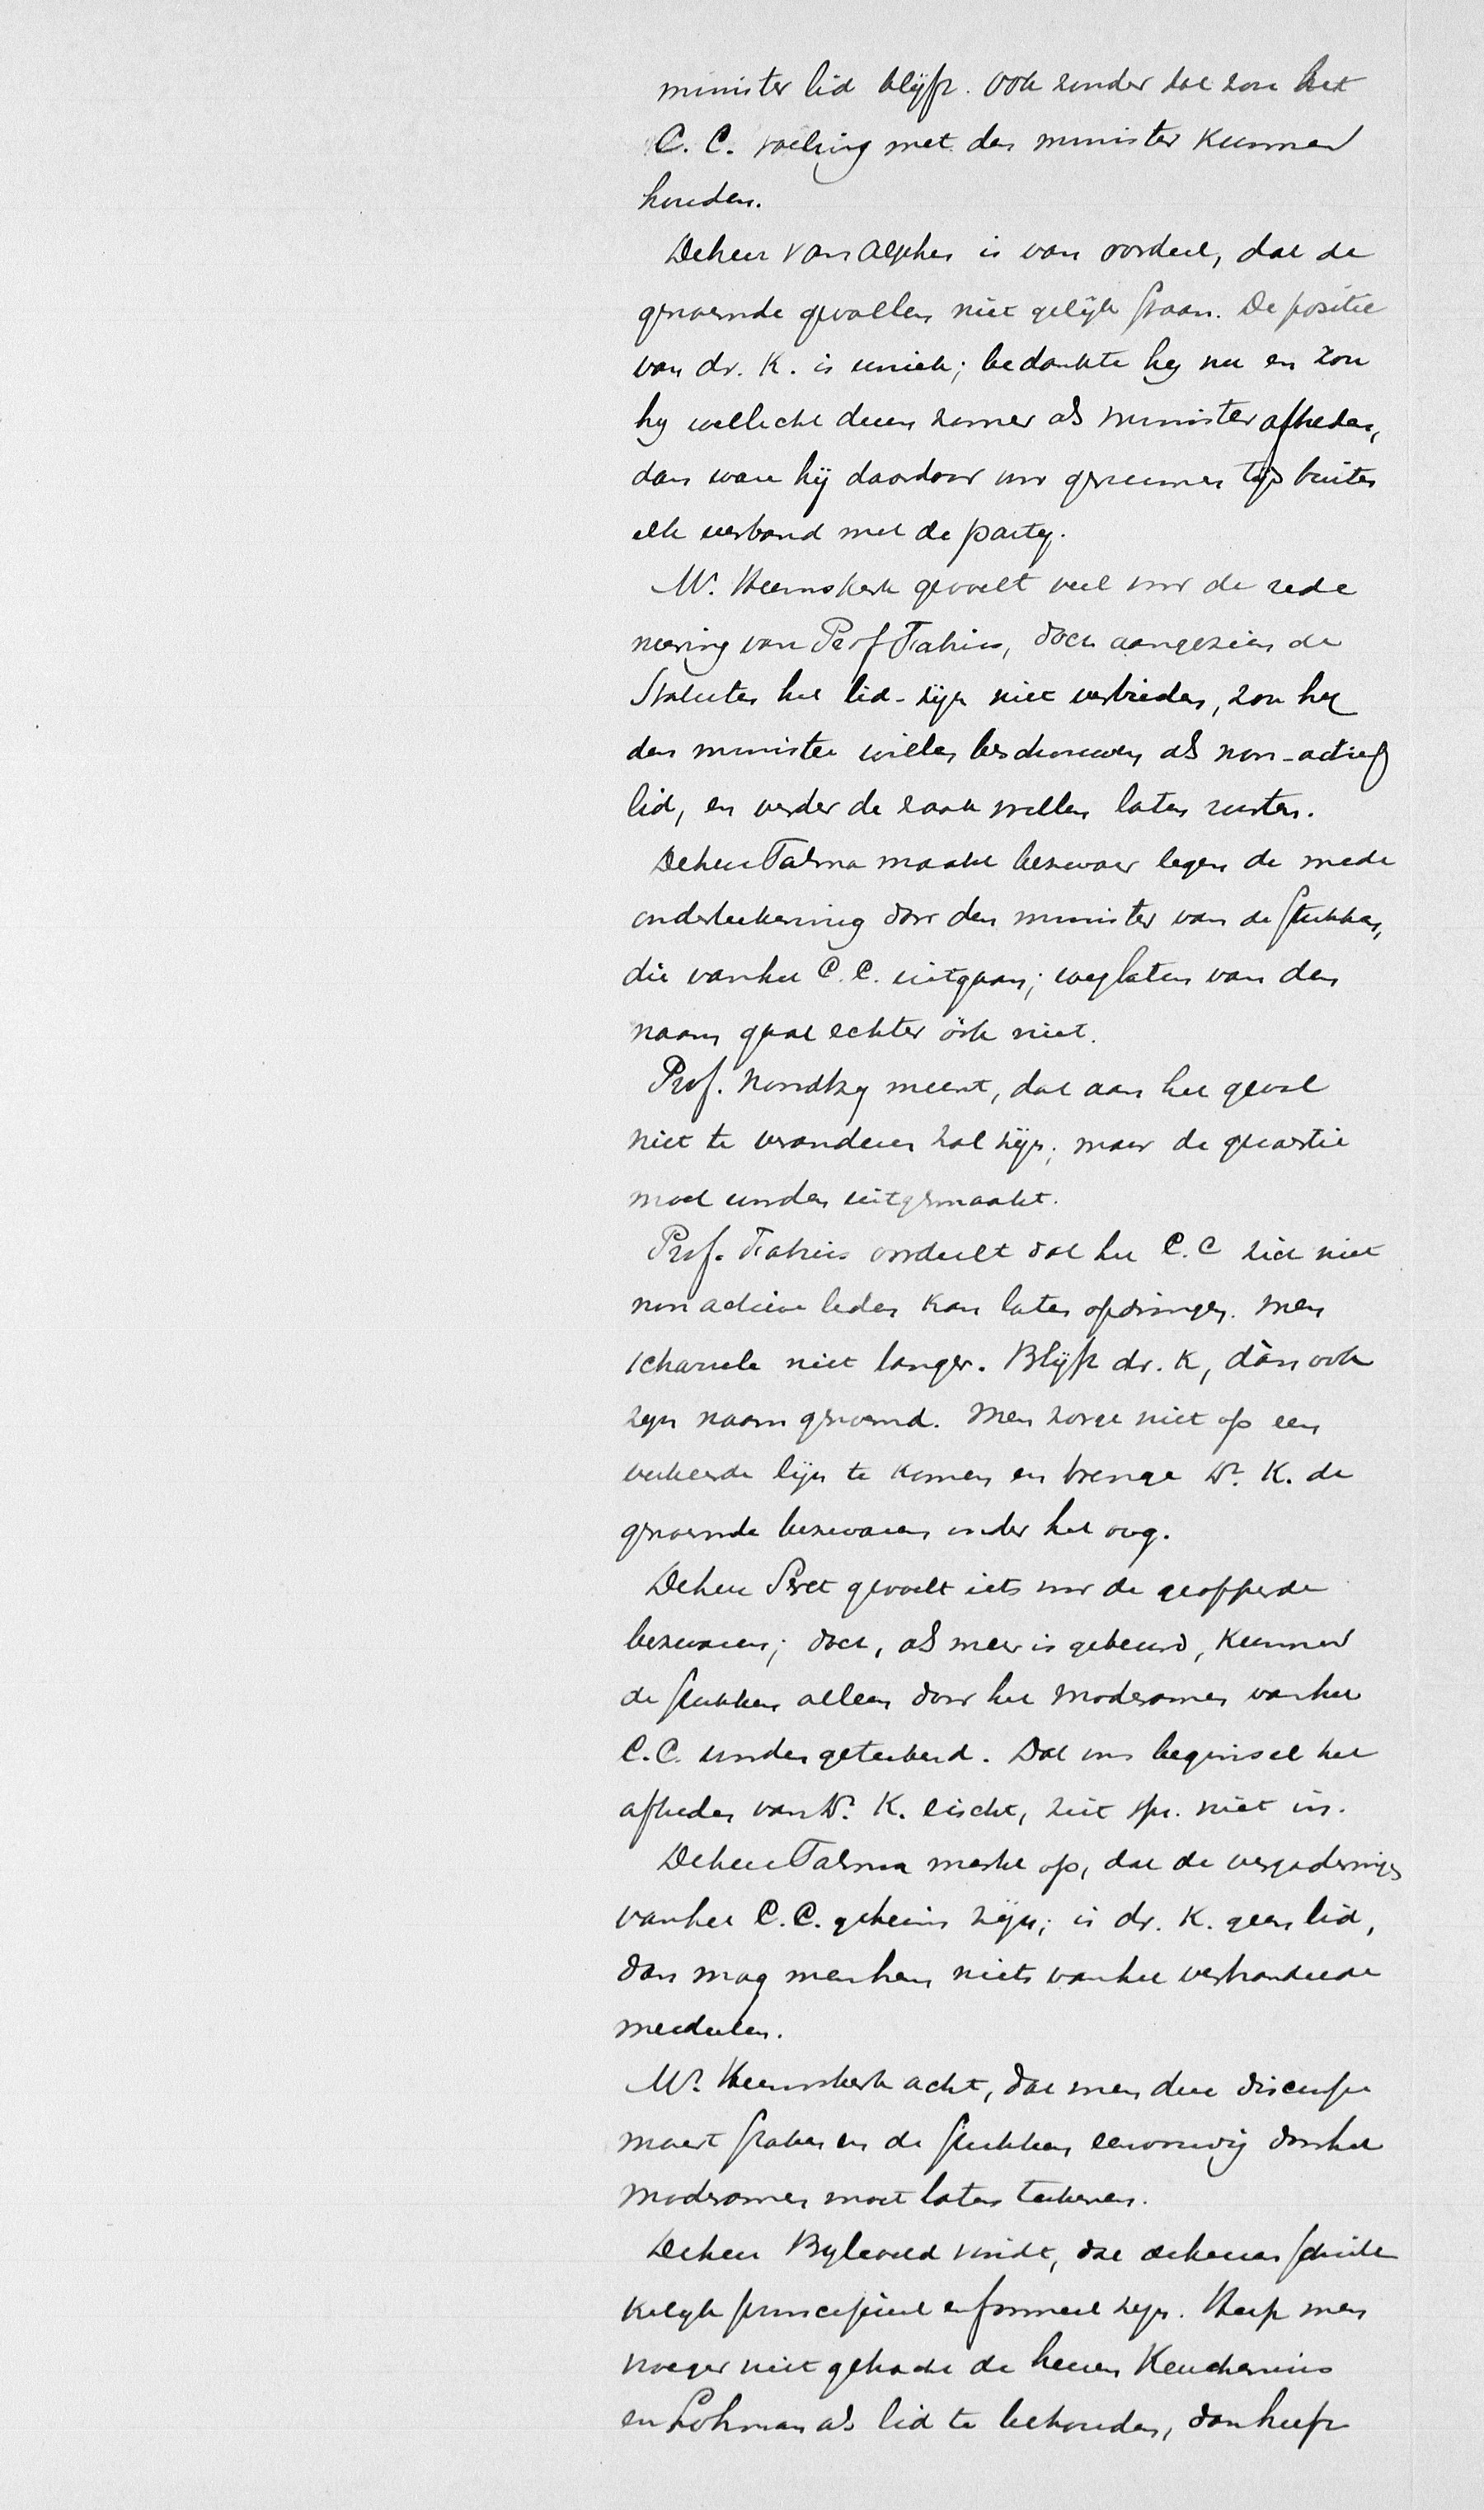 minister lid blijft. Ook zonder dat zou het
C. C. voeling met den minister kunnen
houden.
De heer van Alphen is van oordeel, dat de
genoemde gevallen niet gelijk staan. De positie
van dr. K. is uniek; bedankte hij nu en zou
hij wellicht dezen zomer als minister aftreden,
dan ware hij daardoor voor geruimen tijd buiten
elk verband met de partij.
Mr. Heemskerk gevoelt veel voor de rede
neering van Prof Fabius, doch aangezien de
Statuten het lid-zijn niet verbieden, zou hij
den minister willen beschouwen als non-actief
lid, en verder de zaak willen laten rusten.
De heer Talma maakt bezwaar tegen de mede
onderteekening door den minister van de stukken,
die van het C. C. uitgaan; weglaten van den
naam gaat echter óók niet.
Prof. Noordtzij meent, dat aan het geval
niet te veranderen zal zijn; maar de quaestie
moet worden uitgemaakt.
Prof. Fabius oordeelt dat het C. C zich niet
non actieve leden kan laten opdringen. Men
schansele niet langer. Blijft dr. K, dàn ook
zijn naam genoemd. Men zorge niet op een
verkeerde lijn te komen en brenge Dr. K. de
genoemde bezwaren onder het oog.
De heer Seret gevoelt iets voor de geopperde
bezwaren; doch, als meer is gebeurd, kunnen
de stukken alleen door het Moderamen van het
C. C. worden geteekend. Dat ons beginsel het
aftreden van Dr. K. eischt, ziet spr. niet in.
De heer Talma merkt op, dat de vergaderingen
van het C. C. geheim zijn; is dr. K. geen lid,
dan mag men hem niets van het verhandelde
meedeelen.
Mr. Heemskerk acht, dat men deze discussie
moet staken en de stukken eenvoudig door het
Moderamen moet laten teekenen.
De heer Byleveld vindt, dat de heeren schrik
kelijk principieel en formeel zijn. Heeft men
vroeger niet getracht de heeren Keuchenius
en Lohman als lid te behouden, dan heeft